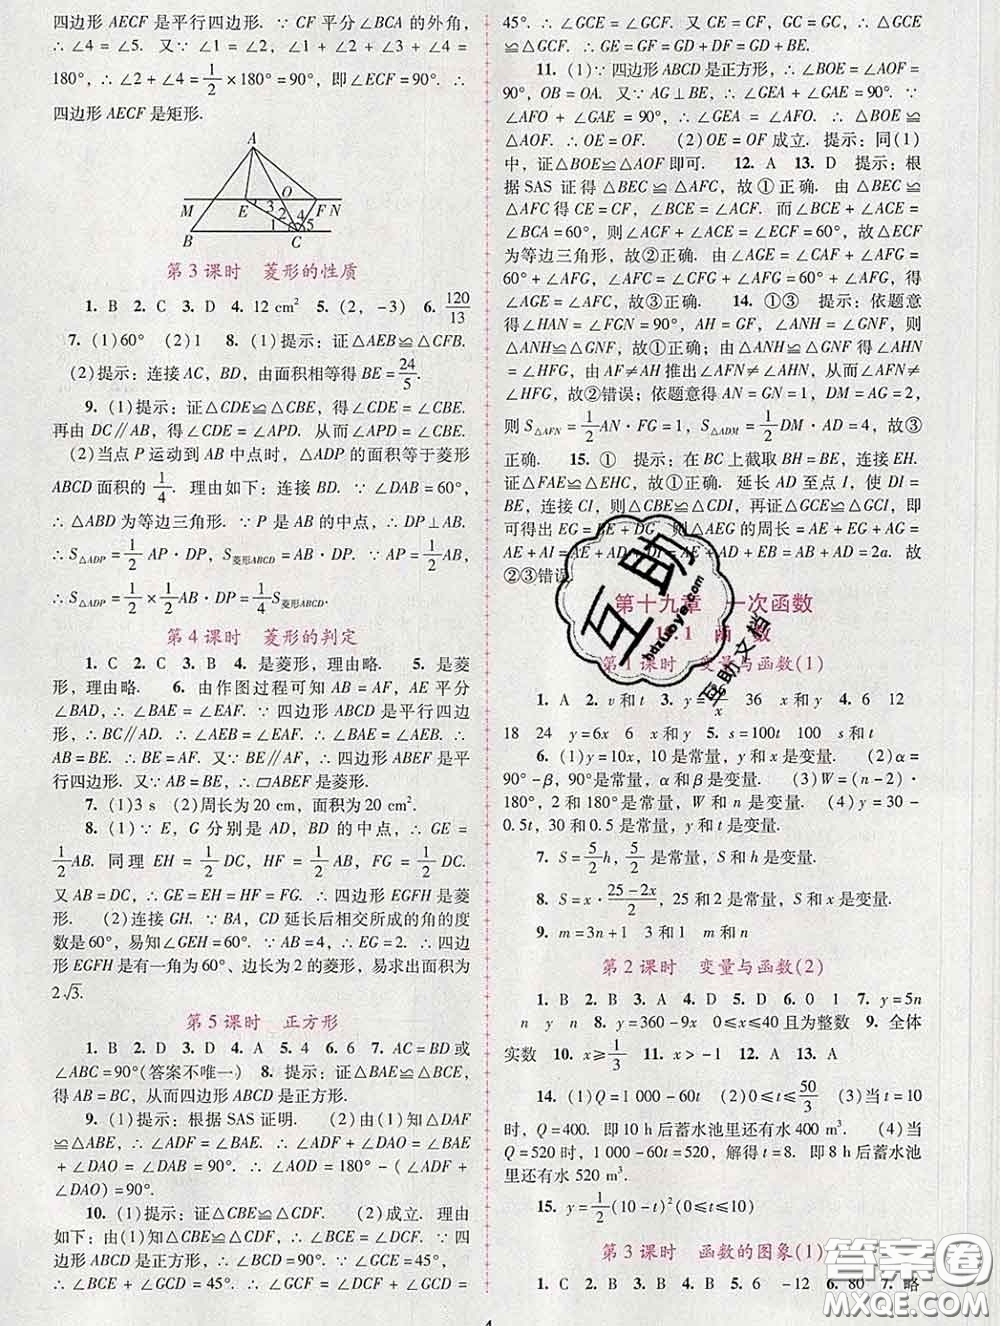 四边形AECF是平行四边形. ∵ CF平分∠BCA的外角,
∴ ∠4 = ∠5. 又∵ ∠1 = ∠2, ∴ ∠1 + ∠2 + ∠4 + ∠5 =
180°, ∴ ∠2 + ∠4 = 1/2 × 180° = 90°, 即∠ECF = 90°. ∴
四边形AECF是矩形.
A
O
M E 3 2 4 F N
B 1 C 5
第3课时 菱形的性质
1. B 2. C 3. D 4. 12 cm² 5. (2, -3) 6. 120/13
7. (1)60° (2)1 8. (1)提示: 证△AEB≌△CFB.
(2)提示: 连接AC, BD, 由面积相等得BE = 24/5.
9. (1)提示: 证△CDE≌△CBE, 得∠CDE = ∠CBE.
再由DC∥AB, 得∠CDE = ∠APD. 从而∠APD = ∠CBE.
(2)当点P运动到AB中点时, △ADP的面积等于菱形
ABCD面积的1/4. 理由如下: 连接BD. ∵ ∠DAB = 60°,
∴ △ABD为等边三角形. ∵ P是AB的中点, ∴ DP⊥AB.
∴ S△ADP = 1/2 AP · DP, S菱形ABCD = AB · DP. ∵ AP = 1/2 AB,
∴ S△ADP = 1/2 × 1/2 AB · DP = 1/4 S菱形ABCD.
第4课时 菱形的判定
1. C 2. C 3. B 4. 是菱形, 理由略. 5. 是菱
形, 理由略. 6. 由作图过程可知AB = AF, AE平分
∠BAD, ∴ ∠BAE = ∠EAF. ∵ 四边形ABCD是平行四边
形, ∴ BC∥AD. ∴ ∠AEB = ∠EAF. ∴ ∠BAE = ∠AEB. ∴
AB = BE. ∴ BE = AF. ∴ 四边形ABEF是平
行四边形. 又∵ AB = BE, ∴ ▱ABEF是菱形.
7. (1)3 s (2)周长为20 cm, 面积为20 cm².
8. (1)∵ E, G分别是AD, BD的中点, ∴ GE =
1/2 AB. 同理EH = 1/2 DC, HF = 1/2 AB, FG = 1/2 DC.
又AB = DC, ∴ GE = EH = HF = FG. ∴ 四边形EGFH是菱
形. (2)连接GH. ∵ BA, CD延长后相交所成的角的度
数是60°, 易知∠GEH = 60°. ∵ AB = 4, ∴ EG = 2. ∴ 四边
形EGFH是有一角为60°、边长为2的菱形, 易求出面积为
2√3.
第5课时 正方形
1. B 2. B 3. D 4. A 5. 4 6. 6 7. AC = BD或
∠ABC = 90°(答案不唯一) 8. 提示: 证△BAE≌△CBF,
得AB = BC, 从而四边形ABCD是正方形.
9. (1)提示: 根据SAS证明. (2)由(1)知△DAF
≌△ABE, ∴ ∠ADF = ∠BAE. ∴ ∠ADF + ∠DAO = ∠BAE
+ ∠DAO = ∠DAB = 90°. ∴ ∠AOD = 180° - (∠ADF +
∠DAO) = 90°.
10. (1)提示: 证△CBE≌△CDF. (2)成立. 理由
如下: 由(1)知△CBE≌△CDF, ∴ ∠BCE = ∠DCF. ∵ 四
边形ABCD是正方形, ∵ ∠GCE = 45°,
∴ ∠BCE + ∠GCD = 45°. ∴ ∠GCF = ∠DCF + ∠GCD =
45°. ∴ ∠GCE = ∠GCF. 又CE = CF, GC = GC, ∴ △GCE
≌△GCF. ∴ GE = GF = GD + DF = GD + BE.
11. (1)∵ 四边形ABCD是正方形, ∴ ∠BOE = ∠AOF =
90°, OB = OA. 又∵ AG⊥BE, ∴ ∠GEA + ∠GAE = 90°. ∵
∠AFO + ∠GAE = 90°, ∴ ∠GEA = ∠AFO. ∴ △BOE≌
△AOF. ∴ OE = OF. (2)OE = OF成立. 提示: 同(1)
中, 证△BOE≌△AOF即可. 12. A 13. D 提示: 根
据SAS证得△BEC≌△AFC, 故①正确. 由△BEC≌
△AFC得CE = CF, ∠BCE = ∠ACF. 而∠BCE + ∠ACE =
∠BCA = 60°, 则∠ACF + ∠ACE = ∠ECF = 60°, 故△ECF
为等边三角形, 故②正确. 由∠AGE = ∠CAF + ∠AFG =
60° + ∠AFG, ∠AFC = ∠CFG + ∠AFG = 60° + ∠AFG, 得
∠AGE = ∠AFC, 故③正确. 14. ①③ 提示: 依题意
得∠HAN = ∠FGN = 90°, AH = GF, ∠ANH = ∠GNF, 则
△ANH≌△GNF, 故①正确; 由△ANH≌△GNF得∠AHN
= ∠HFG, 由AF≠AH推出∠AFN≠∠AHN, 从而∠AFN≠
∠HFG, 故②错误; 依题意得AN = GN = 1, DM = AG = 2,
则S△AFN = 1/2 AN · FG = 1, S△ADM = 1/2 DM · AD = 4, 故③
正确. 15. ① 提示: 在BC上截取BH = BE, 连接EH.
证△FAE≌△EHC, 故①正确. 延长AD至点I, 使DI =
BE, 连接CI, 则△CBE≌△CDI, 再证△GCE≌△GCI, 即
可得出EG = BE + DG, 则△AEG的周长 = AE + EG + AG =
AE + AI = AE + AD + DI = AE + AD + EB = AB + AD = 2a. 故
②③错误.
第十九章 一次函数
19.1 函数
第1课时 变量与函数(1)
1. A 2. v和t 3. 36 x和y 4. 6 12
18 24 y=6x 6 x和y 5. s=100t 100 s和t
6. (1)y=10x, 10是常量, y和x是变量. (2)α=
90°-β, 90°是常量, α和β是变量. (3)W=(n-2)·
180°, 2和180°是常量, W和n是变量. (4)y=30-
0.5t, 30和0.5是常量, y和t是变量.
7. S = 5/2 h, 5/2 是常量, S和h是变量.
8. S = x · (25-2x)/2, 25和2是常量, S和x是变量.
9. m=3n+1 3和1 m和n
第2课时 变量与函数(2)
1. B 2. B 3. A 4. D 5. D 6. 0 1 7. y=5n
n y n 8. y=360-9x 0≤x≤40且为整数 9. 全体
实数 10. x≥1/3 11. x>-1 12. A 13. A
14. (1)Q=1 000-60t (2)0≤t≤50/3 (3)当t=10
时, Q=400. 即10 h后蓄水池里还有水400 m³. (4)当
Q=520时, 1 000-60t=520, 解得t=8. 即8 h后蓄水池
里还有水520 m³.
15. y=1/2(10-t)²(0≤t≤10)
第3课时 函数的图象(1)
1. C 2. B 3. B 4. B 5. -12 6. 80 7. 略
4
互助
hdzuoye.com
互助文档
答案圈
MXQE.COM